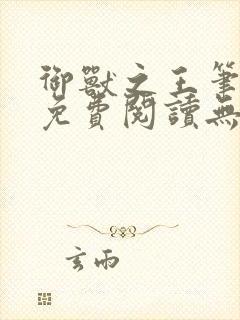 御獸之王筆
免費閱讀無
玄雨